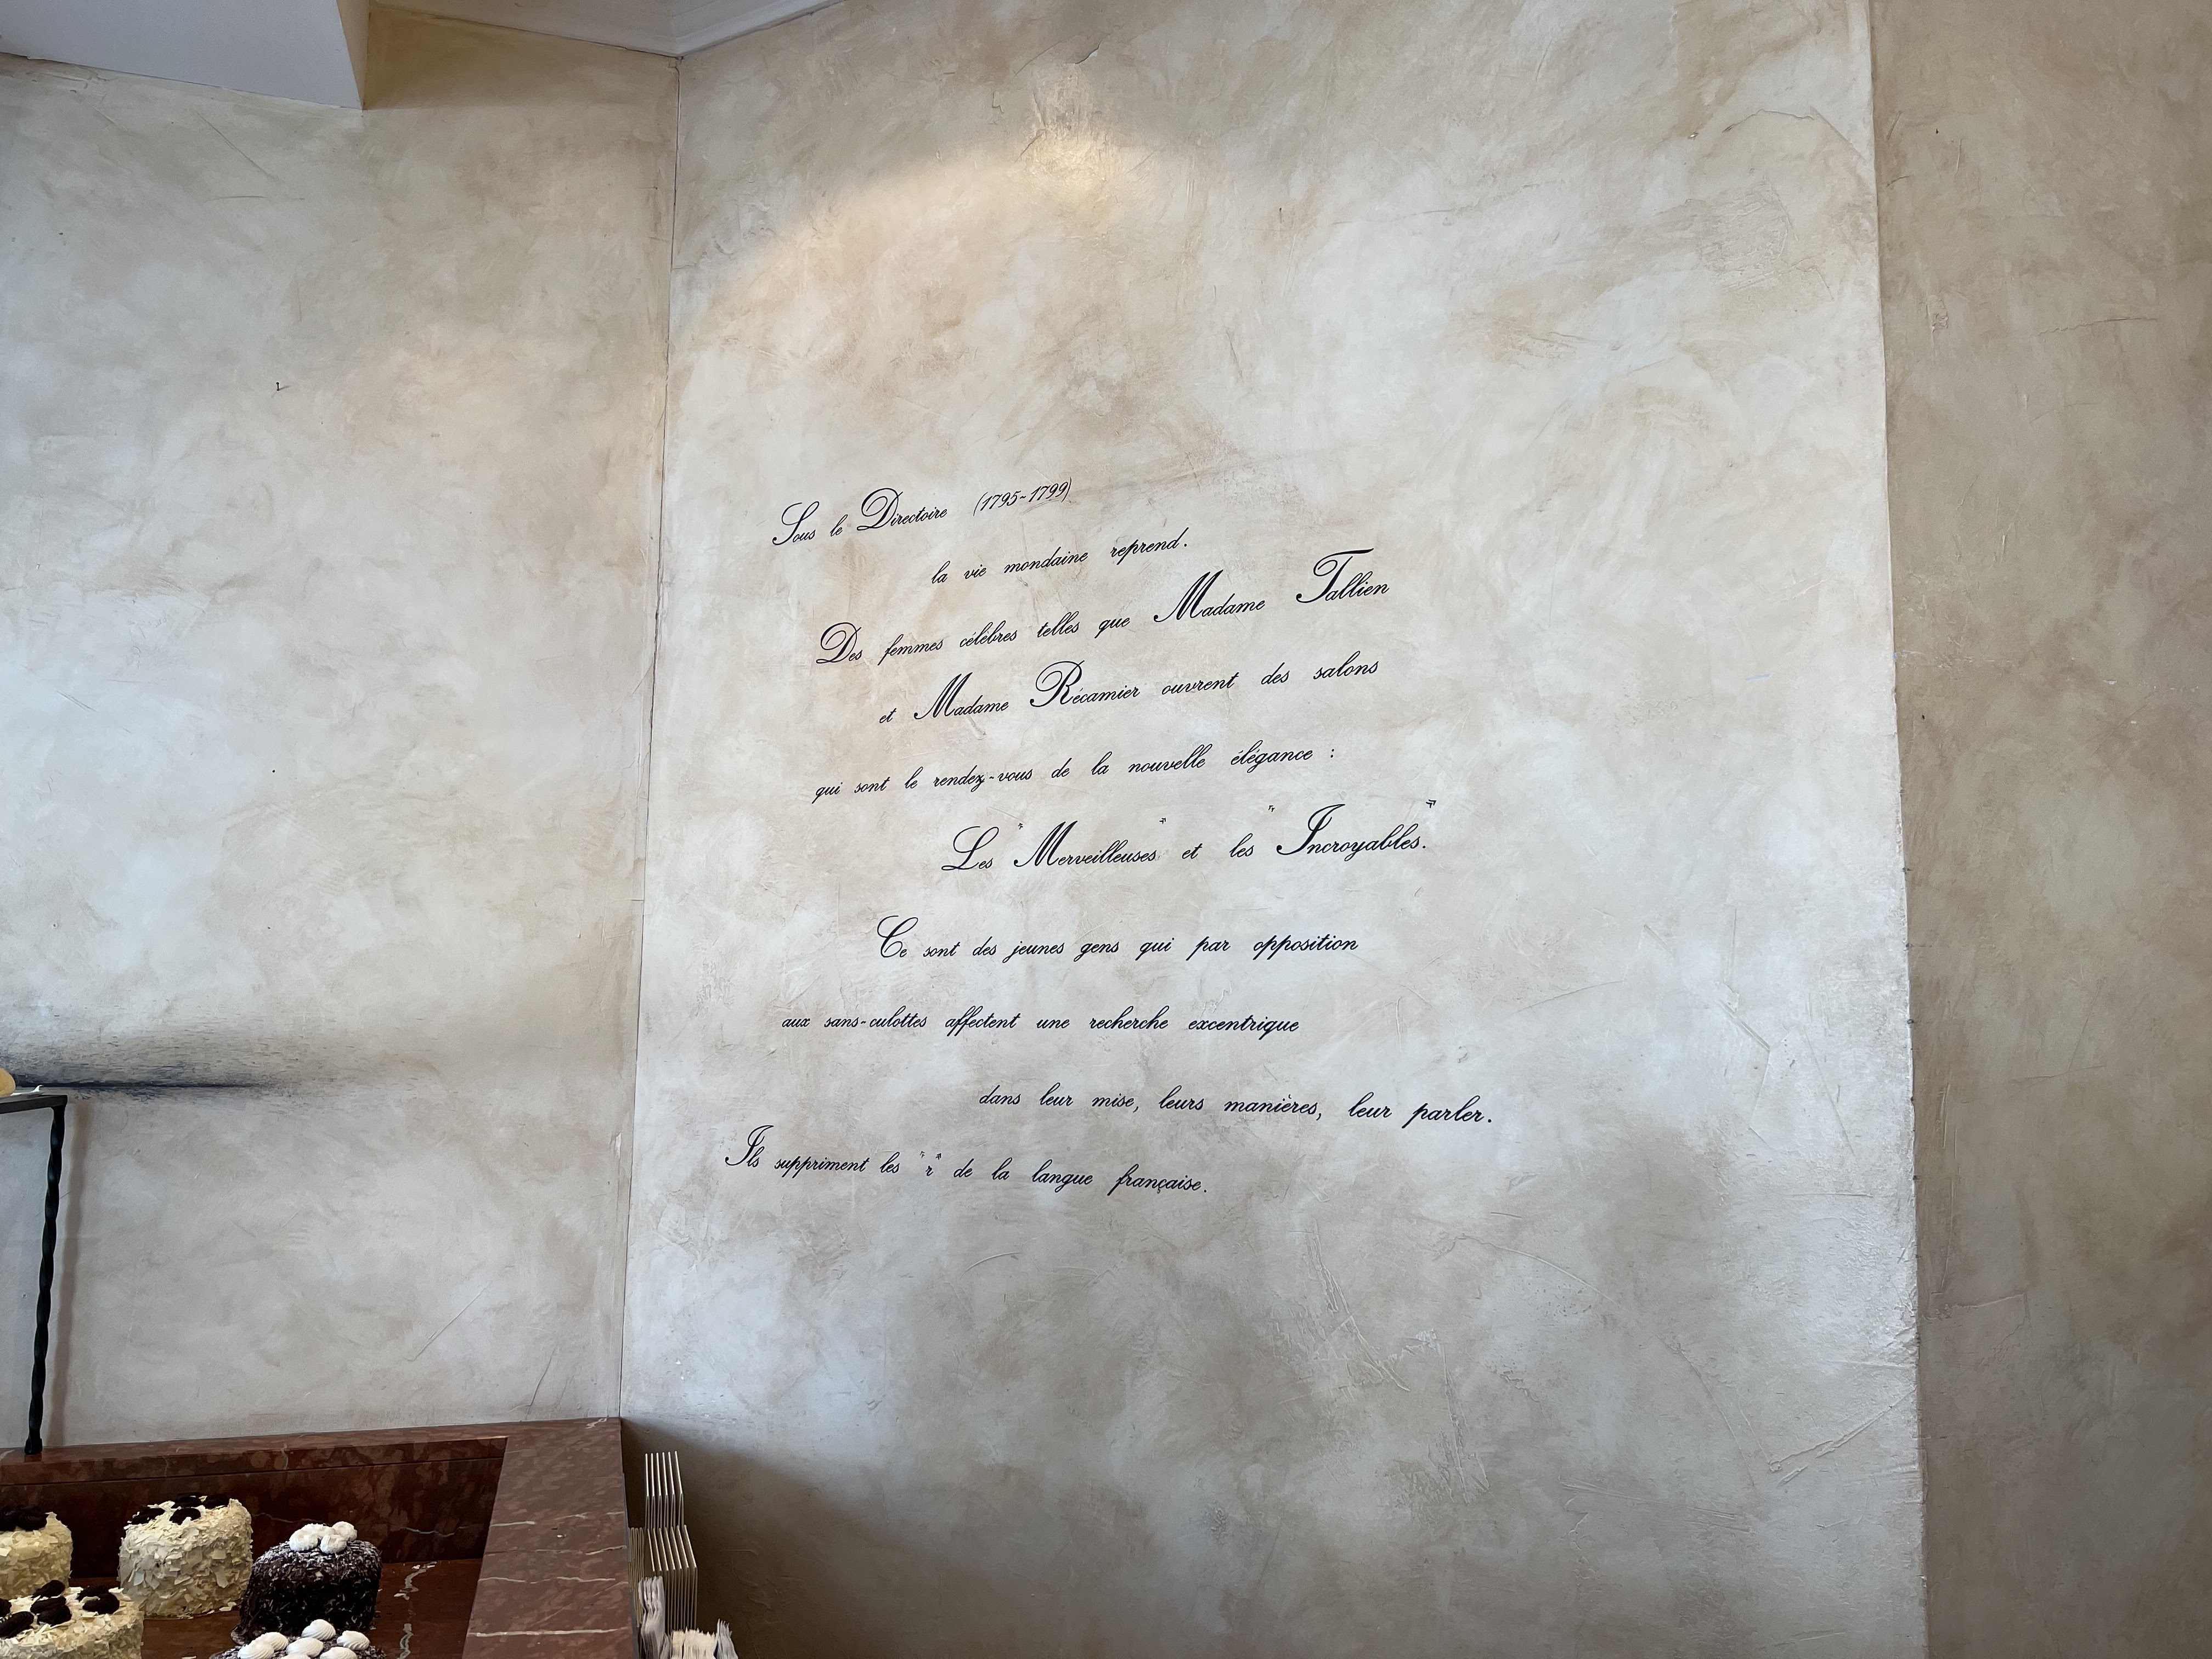 Sous le Directoire (1795-1799)
la vie mondaine reprend.
Des femmes célèbres telles que Madame Tallien
et Madame Récamier ouvrent des salons
qui sont le rendez-vous de la nouvelle élégance :
Les "Merveilleuses" et les "Incroyables."
Ce sont des jeunes gens qui par opposition
aux sans-culottes affectent une recherche excentrique
dans leur mise, leurs manières, leur parler.
Ils suppriment les "r" de la langue française.